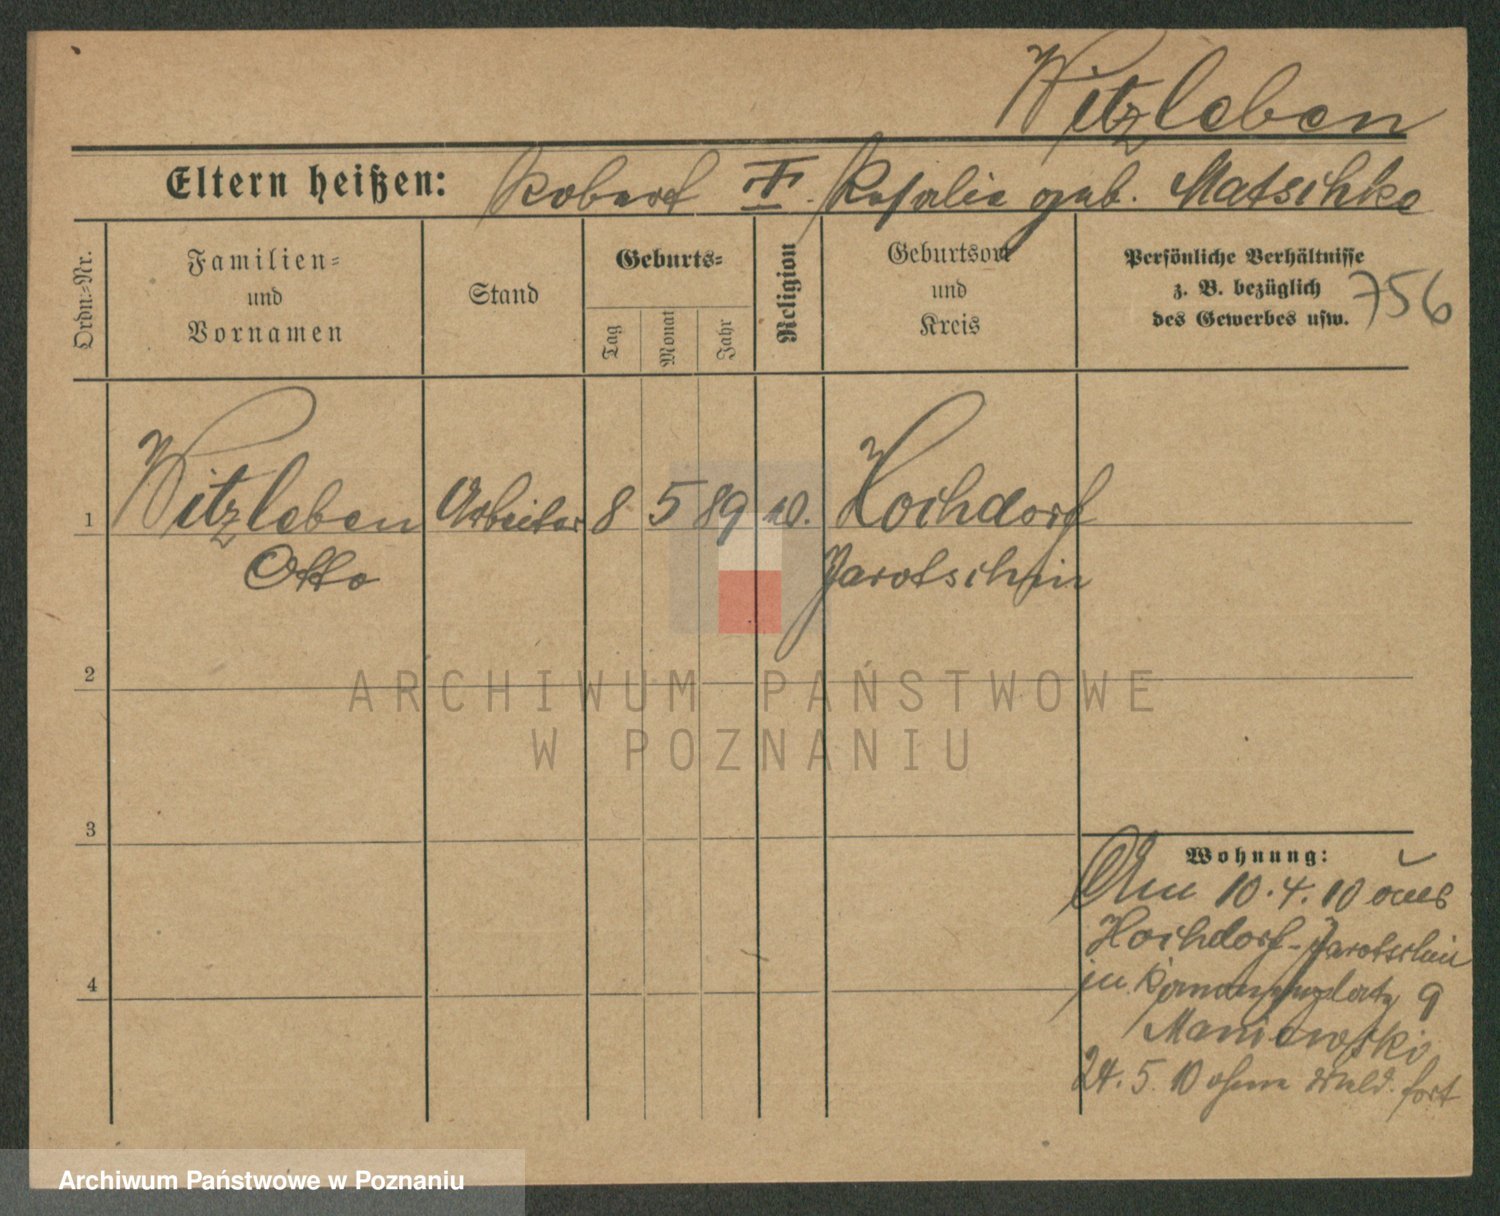 Witzleben
Eltern heißen: Robert u. Rosalie geb. Matschke
Ordn.-Nr.
Familien-
und
Vornamen
Stand
Geburts-
Tag
Monat
Jahr
Religion
Geburtsort
und
Kreis
Persönliche Verhältnisse
z. B. bezüglich
des Gewerbes usw.
756
1 Witzleben Arbeiter 8 5 89 Hochdorf
Otto Jarotschin
2
3
4
Wohnung:
Am 10.4.10 aus
Hochdorf-Jarotschin
in 9
Maniewski
24.5.10 ohne Meld. fort
ARCHIWUM PAŃSTWOWE
W POZNANIU
Archiwum Państwowe w Poznaniu